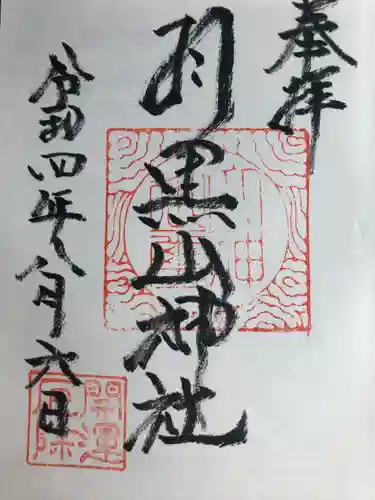 奉拝
羽黒山神社
令和四年八月六日
開運